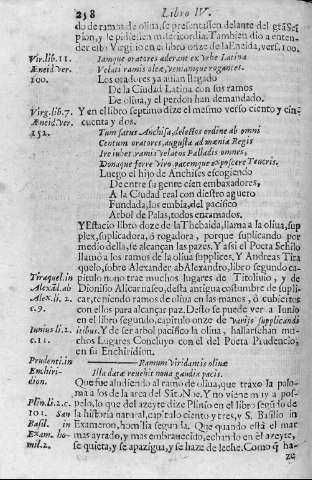 258 Libro IV.
do de ramas de oliua, se presentassen delante del grã Sci-
pion, y le pidiessen misericordia. Tambien dio a enten-
der esto Virgilio en el libro onze de la Eneida, vers. 100.
Vir. lib. 11. Iamque oratores aderant ex Vrbe Latina
Æneid. ver. Velati ramis oleæ, veniamque rogantes.
100. Los oradores ya auian llegado
De la Ciudad Latina con sus ramos
De oliua, y el perdon han demandado.
Virg. lib. 7. Y en el libro septimo dize el mesmo verso ciento y cin-
Æneid. ver. cuenta y dos.
152. Tum satus Anchisa, delectos ordine ab omni
Centum oratores, augusta ad mœnia Regis
Ire iubet, ramis velatos Palladis omnes,
Donaque ferre viro, pacemque exposcere Teucris.
Luego el hijo de Anchises escogiendo
De entre su gente cien embaxadores,
A la Ciudad real con diestro aguero
Fundada, los embia, del pacifico
Arbol de Palas, todos enramados.
Y Estacio libro doze de la Thebaida, llama a la oliua, sup
plex, suplicadora, ó rogadora, porque suplicando por
medio della, se alcançan las pazes. Y assi el Poeta Schilo
llamó a los ramos de la oliua supplices. Y Andreas Tira
quelo, sobre Alexander ab Alexandro, libro segundo ca-
Tiraquel. in pitulo nono trae muchos lugares de Titoliuio, y de
Alexãd. ab Dionisio Alicarnaseo, desta antigua costumbre de supli-
Alex. li. 2. car, teniendo ramos de oliua en las manos, ó cubiertos
c. 9. con ellos para alcançar paz. Desto se puede ver a Iunio
en el libro segundo, capitulo onze de Varijs supplicandi
Iunius li. 2. ritibus. Y de ser arbol pacifico la oliua, hallarseham mu-
c. 11. chos Lugares Concluyo con el del Poeta Prudencio,
en su Enchiridion.
Prudenti. in Ramum viridantis oliuæ
Enchiri- Illa datæ reuehit noua gaudia pacis.
dion. Que fue aludiendo al ramo de oliua, que traxo la palo-
ma a los de la arca del Sãt. Noe. Y no viene muy a pos-
Plin. li. 2. c. pelo, lo que del azeyte dize Plinio en el libro segũdo de
101. San la historia natural, capitulo ciento y tres, y S. Basilio in
Basil. in Exameron, homilia segunda. Que quando está el mar
Exam. ho- mas ayrado, y mas embrauecido, echando en el azeyte,
mil. 2. se quieta, y se apazigua, y se haze de leche. Como q̃ ha-